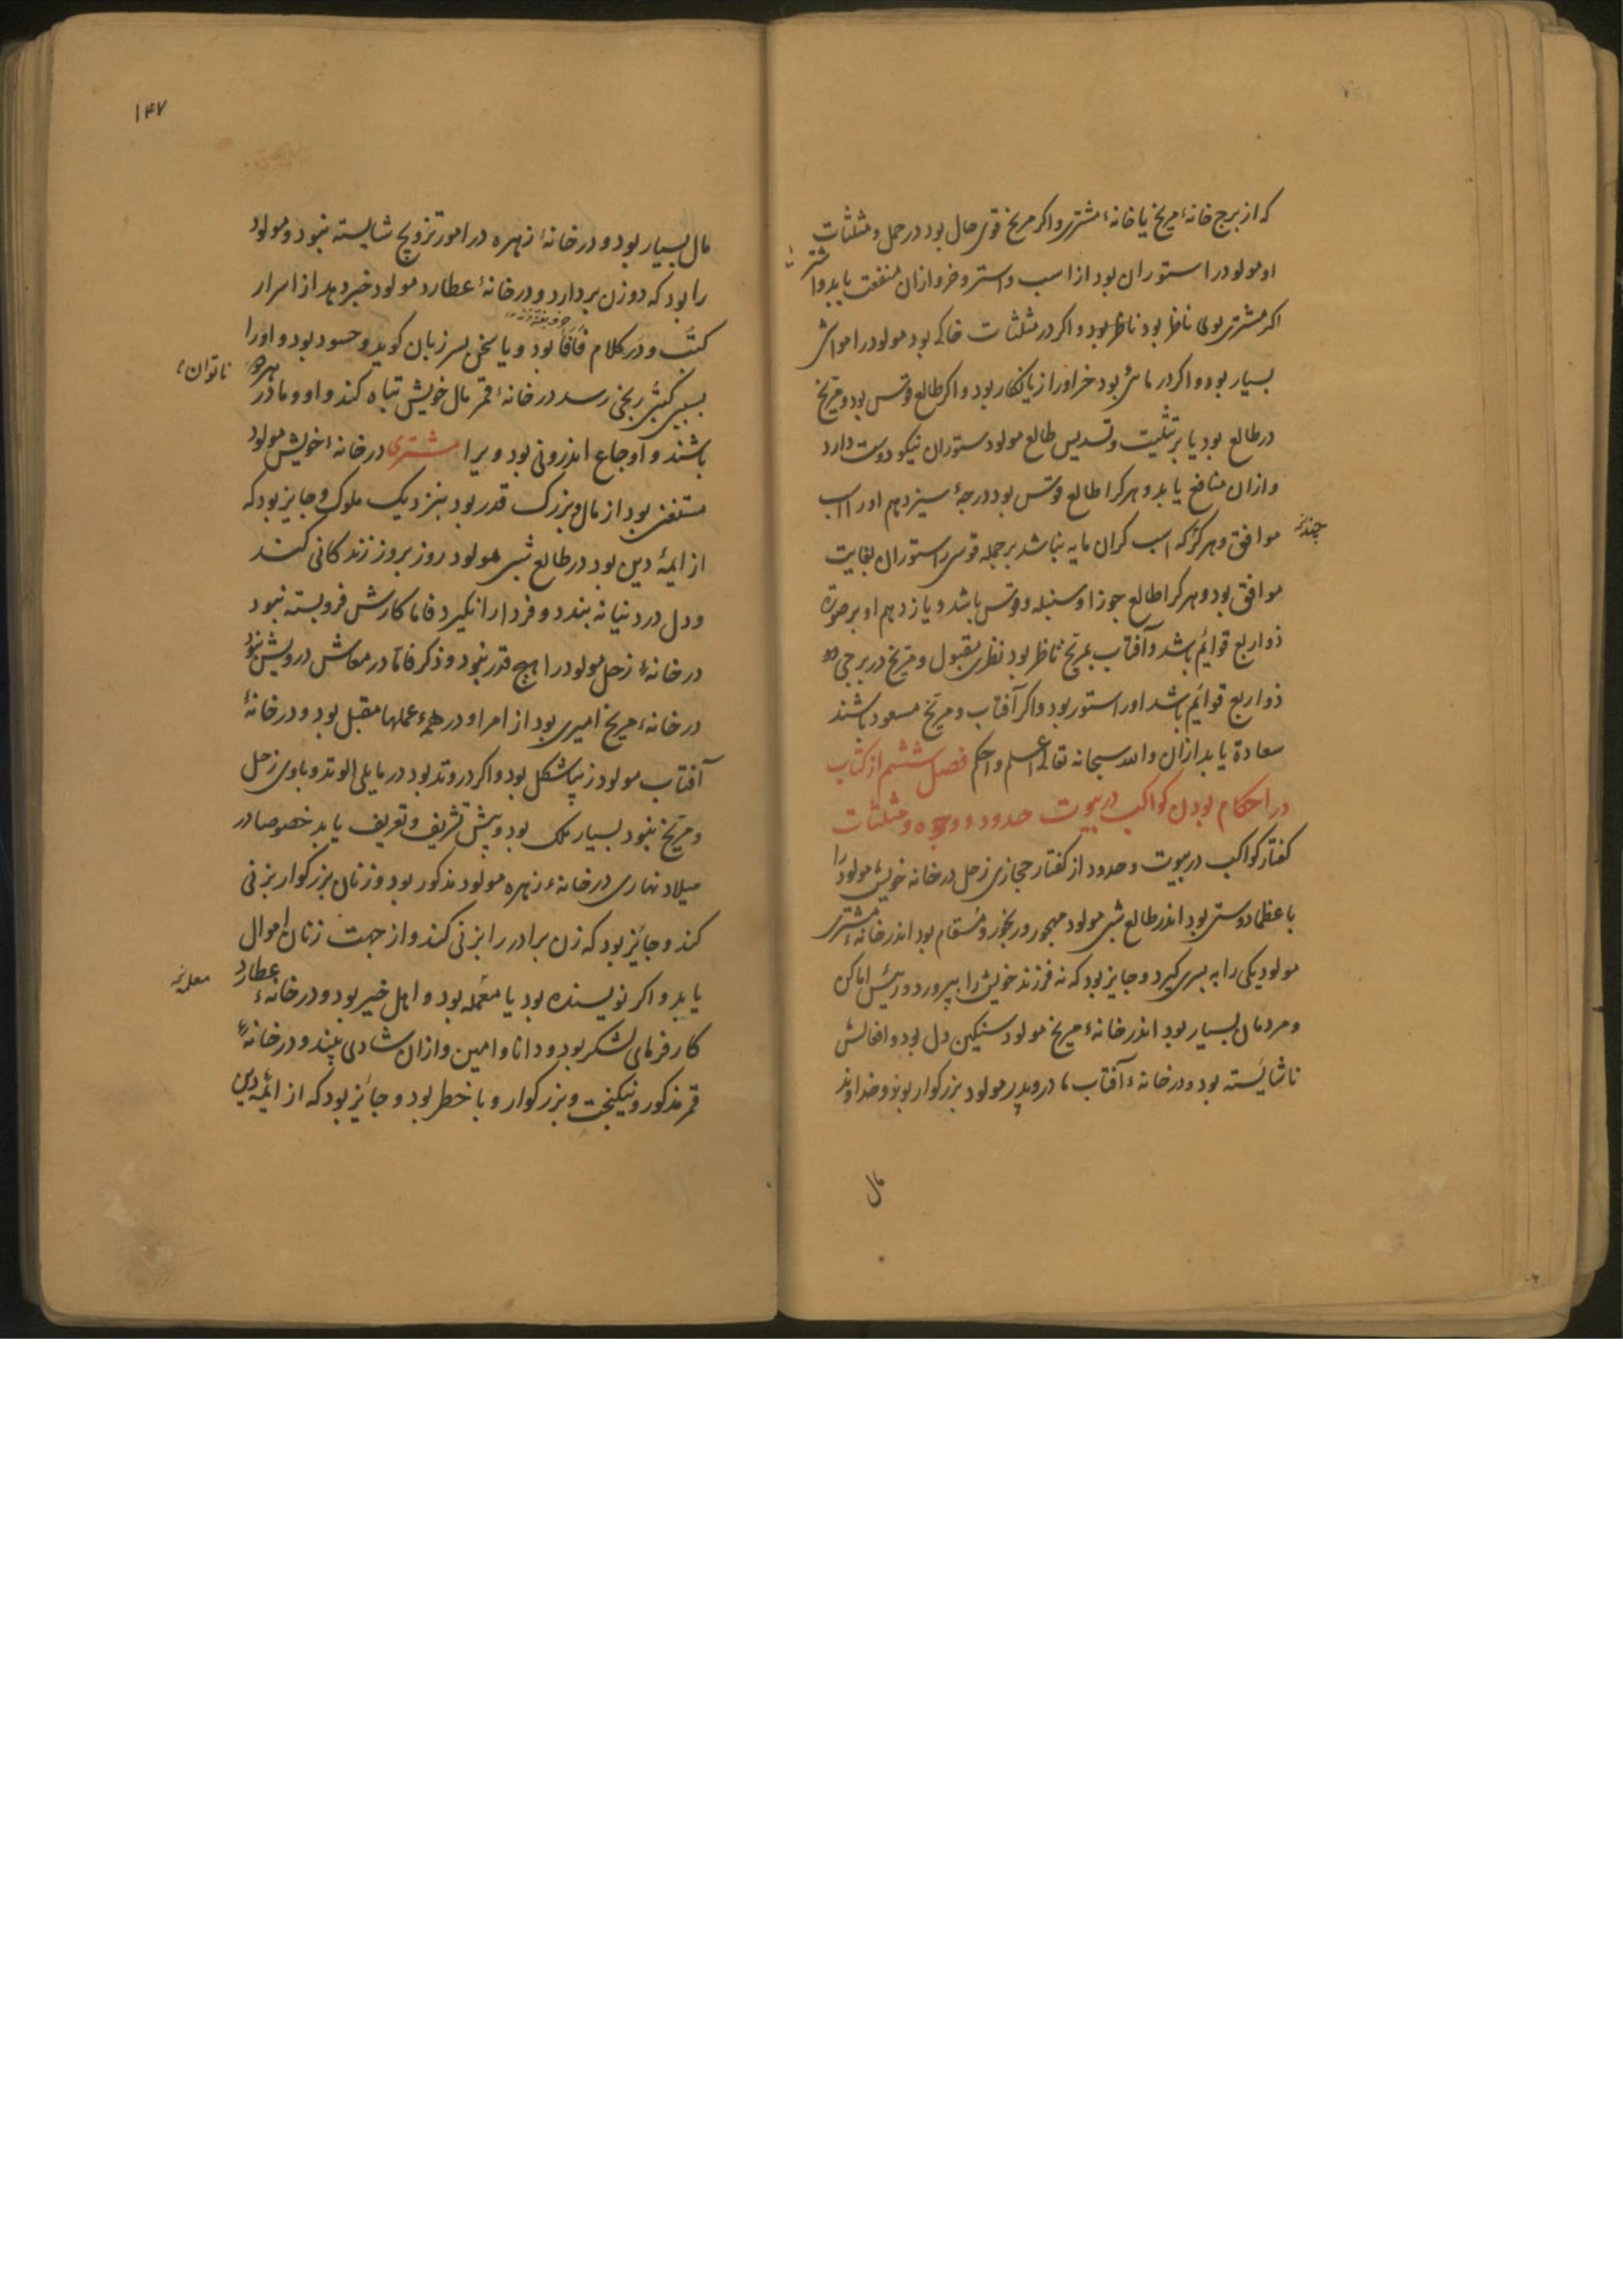 که از برج خانهٔ مریخ یا خانهٔ مشتری و اکر مریخ قوی حال بود در حمل و مثلثات
او مولود را ستوران بود از اسب و استر و خر و ازان منفعت یابد و اشتر
اکر مشتری بوی ناظر بود ناظر بود و اکر در مثلثات خاکی بود مولود را مواشی
بسیار بود و اکر در مائی بود خر اورا زیانکار بود و اکر طالع قوس بود و مریخ
در طالع بود یا بر تثلیث و تسدیس طالع مولود ستوران نیکو دوست دارد
و ازان منافع یابد و هر کرا طالع قوس بود درجهٔ سیزدهم اورا اسب
موافق و هرکز که اسب کران مایه نباشد بر جمله قوسی را ستوران بغایت
چندانی
موافق بود و هر کرا طالع جوزا و سنبله و قوس باشد و یازدهم او بر صورة
ذو اربع قوائم باشد و آفتاب بمریخ ناظر بود نظری مقبول و مریخ در برجی بود
ذو اربع قوائم باشد اورا ستور بود و اکر آفتاب و مریخ مسعود باشند
سعادة یابد ازان والله سبحانه تعالی اعلم و احکم فصل ششم از کتاب
در احکام بودن کواکب در بیوت حدود و وجوه و مثلثات
کفتار کواکب در بیوت و حدود از کفتار حجازی زحل در خانه خویش مولود را
با عظما دوستی بود اندر طالع شبی مولود مهجور و رنجور و مسقام بود اندر خانهٔ مشتری
مولود یکی را به پسری کیرد و جایز بود که نه فرزند خویش را بپرورد و رئیس اماکن
و مردمان بسیار بود اندر خانهٔ مریخ مولود سنکین دل بود و افعالش
ناشایسته بود و در خانهٔ آفتاب مادر و پدر مولود بزرکوار بوند و خداوند
مال
۱۴۷
مال بسیار بود و در خانهٔ زهره در امور تزویج شایسته نبود و مولود
را بود که دو زن بردارد و در خانهٔ عطارد مولود خبر دهد از اسرار
کتب و در کلام فأفأ بود و یا سخن بسر زبان کوید و حسود بود و اورا
بسبب کتب رنجی رسد در خانهٔ قمر مال خویش تباه کند و او و مادر بهره
ناتوان
باشند و اوجاع اندرونی بود ویرا مشتری در خانهٔ خویش مولود
مستغنی بود از مال و بزرک قدر بود بنزدیک ملوک و جایز بود که
از ایمهٔ دین بود در طالع شبی مولود روز بروز زندکانی کند
و دل در دنیا نه بندد و فردا را نکیرد فاما کارش فروبسته نبود
در خانهٔ زحل مولود را هیچ قدر نبود و ذکر فاما در معاش درویش نبود
در خانهٔ مریخ امیری بود از امرا و در همهٔ عملها مقبل بود و در خانهٔ
آفتاب مولود زیبا شکل بود و اکر در وتد بود در مایلی الوتد و باوی زحل
و مریخ نبود بسیار ملک بود و بیش تشریف و تعریف یابد خصوصا در
میلاد نهاری در خانهٔ زهره مولود مذکور بود و زنان بزرکوار بزنی
کند و جائز بود که زن برادر را بزنی کند و از جهت زنان اموال
یابد و اکر نویسنده بود یا معمله بود و اهل خیر بود و در خانهٔ عطارد
کارفرمای لشکر بود و دانا و امین و ازان شادی بیند و در خانهٔ
قمر مذکور و نیکبخت و بزرکوار و با خطر بود و جائز بود که از ائمهٔ دین